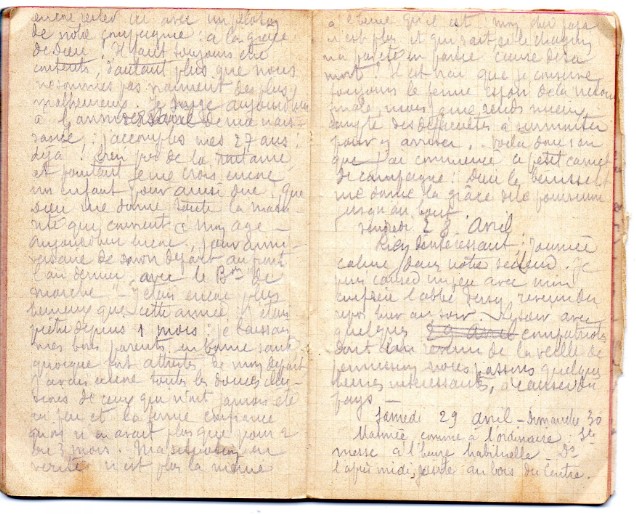 encore rester ici avec un peloton
de notre compagnie : à la grâce
de Dieu ! Il faut toujours être
contents, d'autant plus que nous
ne sommes pas vraiment des plus
malheureux. Je songe aujourd'hui
à l'anniversaire de ma nais-
sance : j'accomplis mes 27 ans :
déjà ! bien près de la trentaine
et pourtant je me crois encore
un enfant pour ainsi dire. Que
Dieu me donne toute la matu-
rité qui convient à mon âge —
Aujourd'hui encore, jour anni-
versaire de mon départ au front
l'an dernier avec le Bon de
marche — J'étais encore plus
heureux que cette année, j'étais
prêtre depuis 1 mois : je laissais
mes bons parents en bonne santé
quoique fort attristés de mon départ
J'avais encore toutes les douces
de ceux qui n'ont jamais été
au feu et la ferme confiance
qu'on n'en avait plus que pour 2
ou 3 mois. Ma situation en
vérité n'est plus la même
à l'heure qu'il est : mon cher papa
n'est plus et qui sait si le chagrin
n'a pas été en partie cause de sa
mort ? Il est vrai que je conserve
toujours le ferme espoir de la victoire
finale, mais je me rends mieux
compte des difficultés à surmonter
pour y arriver. Voilà donc un an
que j'ai commencé ce petit carnet
de campagne : Dieu le bénisse et
me donne la grâce de le poursuivre
jusqu'au bout.
Vendredi 28 avril
Rien d'intéressant : Journée
calme dans notre secteur. Je
puis causer un peu avec mon
l'abbé revenu du
repos hier au soir. Le soir avec
quelques 29 avril compatriotes
dont l'un revenu de la veille de
permission nous passons quelques
heures intéressantes, à causer du
pays —
Samedi 29 avril — Dimanche 30
Matinée, comme à l'ordinaire : Ste
messe à l'heure habituelle —
l'après midi, au bois du Centre.